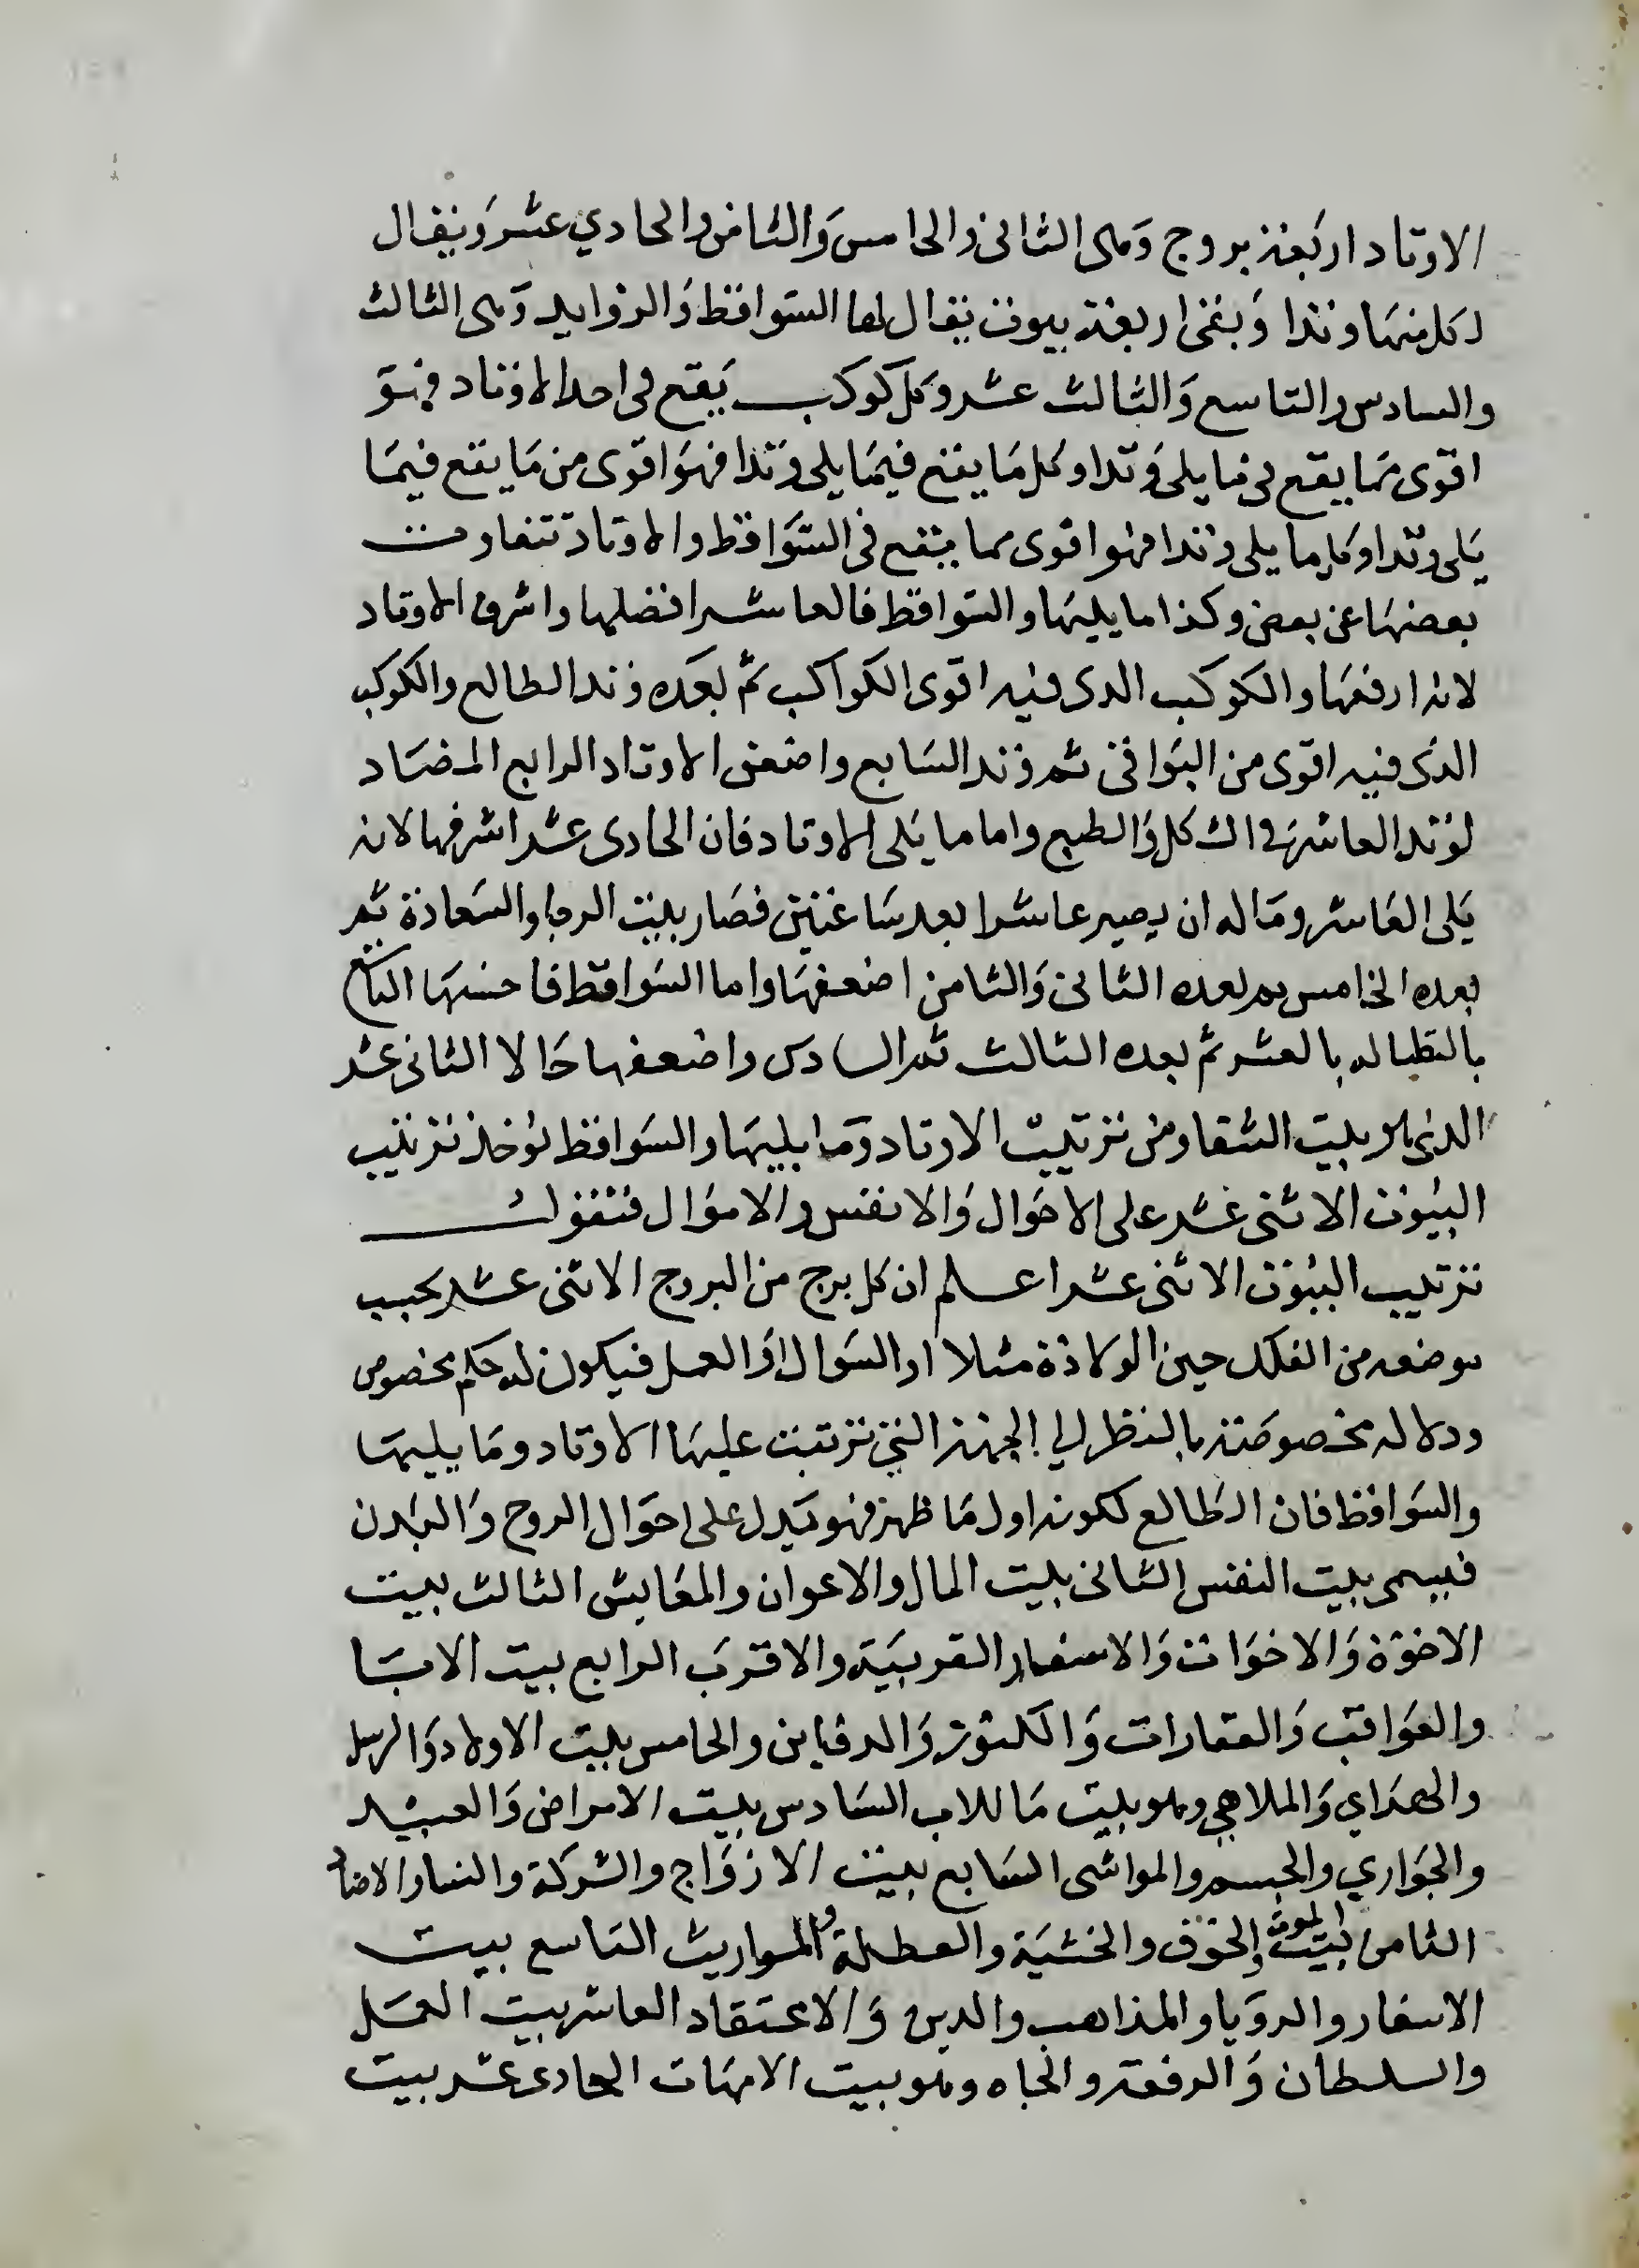 الاوتاد اربعة بروج وهى الثانى والخامس والثامن والحادي عشر ويقال
لكل منها وتدا وبقى اربعة بيوت يقال لها السواقط والزوايد وهى الثالث
والسادس والتاسع والثالث عشر وكل كوكب يقع فى احد الاوتاد فهو
اقوى مما يقع فى ما يلى وتدا وكل ما يقع فيما يلى وتدا فهو اقوى من ما يقع فيما
يلى وتدا وكل ما يلى وتدا فهو اقوى مما يقع فى السواقط والاوتاد تتفاوت
بعضها عن بعض وكذا ما يليها والسواقط فالعاشر افضلها واشرف الاوتاد
لانه ارفعها والكوكب الدى فيه اقوى الكواكب ثم بعده وتد الطالع والكوكب
الذى فيه اقوى من البواقى ثم وتد السابع واضعف الاوتاد الرابع المضاد
لوتد العاشر فى الشكل والطبع واما ما يلى الاوتاد فان الحادى عشر اشرفها لانه
يلى العاشر وماله ان يصير عاشرا بعد ساعتين فصار بيت الرجا والسعادة ثم
بعده الخامس ثم بعده الثانى والثامن اضعفها واما السواقط فاحسنها التاسع
بالنظر اله بالعشر ثم بعده الثالث ثم السادس واضعفها حالا الثانى عشر
الذى هو بيت الشقا ومن ترتيب الاوتاد وما يليها والسواقط يوخذ ترتيب
البيوت الاثنى عشر على الاحوال والانفس والاموال فنقول
ترتيب البيوت الاثنى عشر اعلم ان كل برج من البروج الاثنى عشر بحسب
موضعه من الفلك حين الولادة مثلا او السوال او العمل فيكون له حكم مخصوص
ودلاله مخصوصة بالنظر الي الجهة التى ترتبت عليها الاوتاد وما يليها
والسواقط فان الطالع لكونه اول ما ظهر فهو يدل على احوال الروح والبدن
فيسمى بيت النفس الثانى بيت المال والاعوان والمعايش الثالث بيت
الاخوة والاخوات والاسفار القريبة والاقرب الرابع بيت الابا
والعواقب والعقارات والكنوز والدفاين والخامس بيت الاولاد والرسل
والهداي والملاهي وهو بيت مال الاب السادس بيت الامراض والعبيد
والجواري والجسم والمواشى السابع بيت الازواج والشركة والنسا والاضداد
الثامن بيت الموت والخوف والخشية والعطلة والمواريث التاسع بيت
الاسفار والرويا والمذاهب والدين والاعتقاد العاشر بيت العمل
والسلطان والرفعة والجاه وهو بيت الامهات الحادى عشر بيت